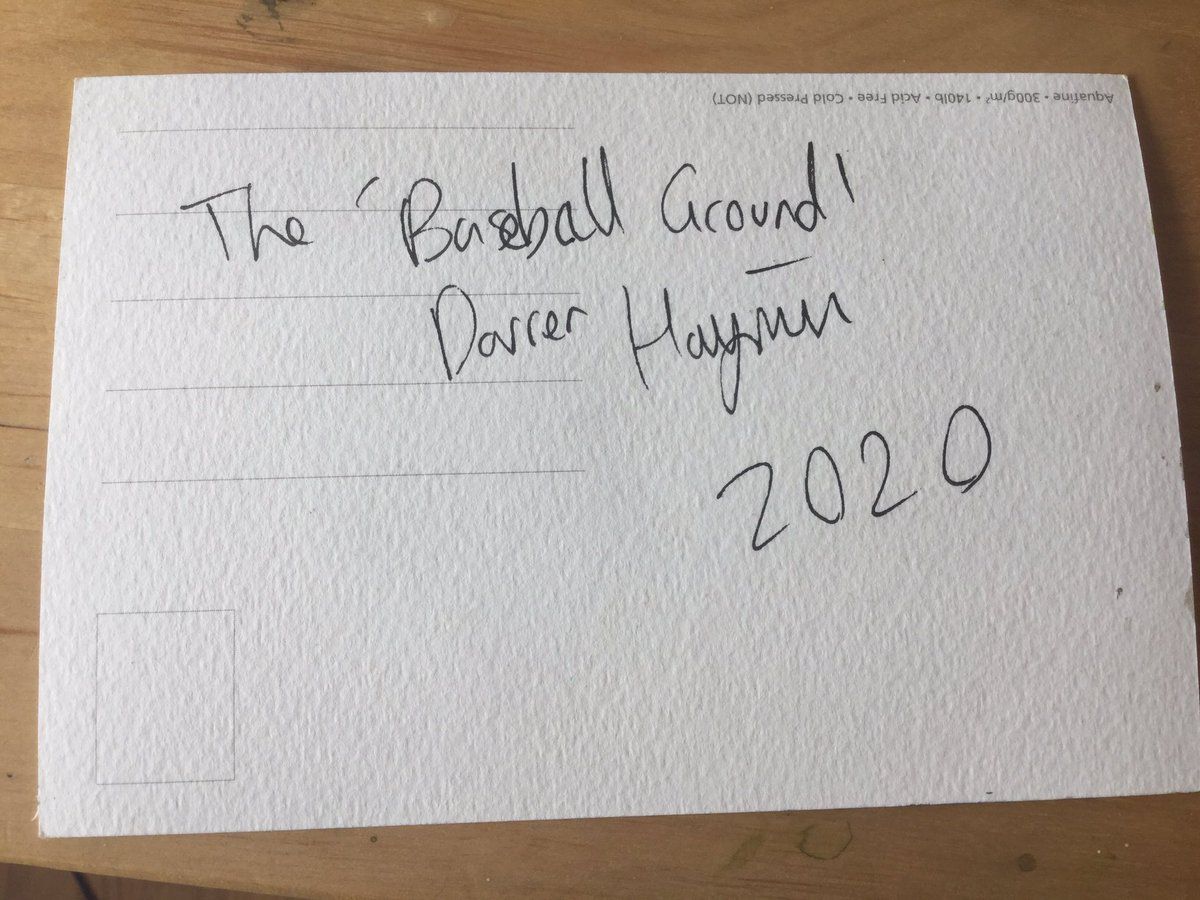 Aquafine • 300g/m² • 140lb • Acid Free • Cold Pressed (NOT)
The 'Baseball Ground'
Darren Hayman
2020